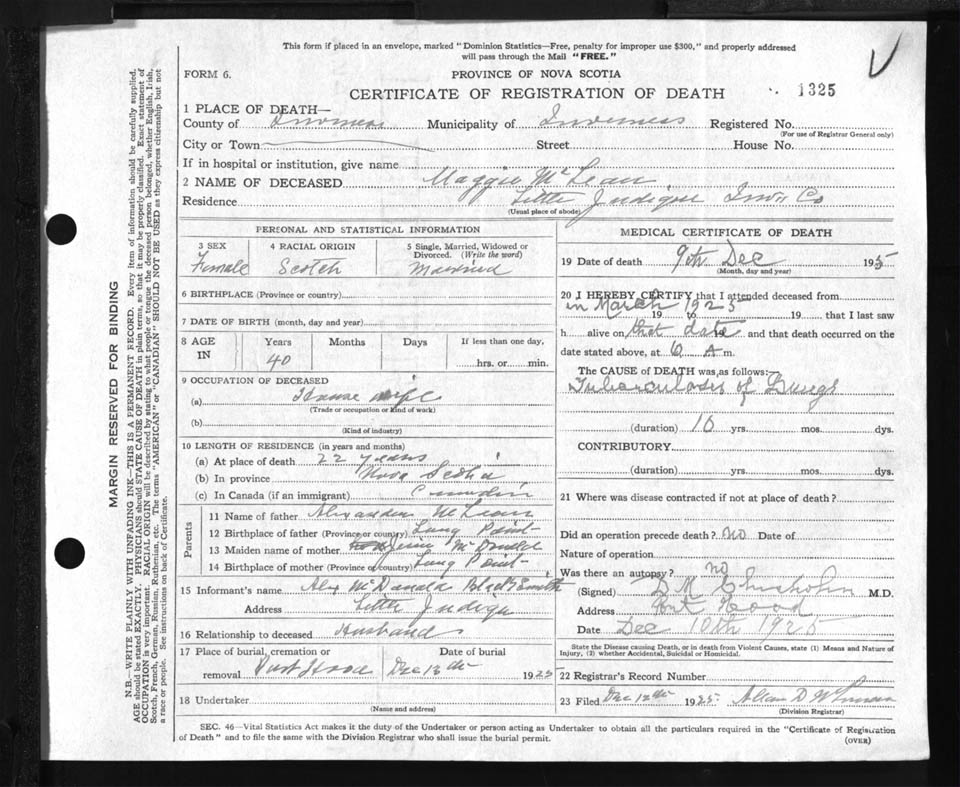 This form if placed in an envelope, marked "Dominion Statistics—Free, penalty for improper use $300," and properly addressed
will pass through the Mail "FREE."
FORM 6.
PROVINCE OF NOVA SCOTIA
CERTIFICATE OF REGISTRATION OF DEATH
1325
1 PLACE OF DEATH—
County of Inverness Municipality of Inverness Registered No.
(For use of Registrar General only)
City or Town Street House No.
If in hospital or institution, give name
2 NAME OF DECEASED Maggie McLean
Residence Little Judique Inv. Co
(Usual place of abode)
PERSONAL AND STATISTICAL INFORMATION
3 SEX 4 RACIAL ORIGIN 5 Single, Married, Widowed or
Divorced. (Write the word)
Female Scotch Married
6 BIRTHPLACE (Province or country)
7 DATE OF BIRTH (month, day and year)
8 AGE IN Years Months Days If less than one day,
40 hrs. or min.
9 OCCUPATION OF DECEASED
(a) House wife
(Trade or occupation or kind of work)
(b)
(Kind of industry)
10 LENGTH OF RESIDENCE (in years and months)
(a) At place of death 22 years
(b) In province Nova Scotia
(c) In Canada (if an immigrant)
Parents
11 Name of father Alexander McLean
12 Birthplace of father (Province or country) Long Point
13 Maiden name of mother McDonald
14 Birthplace of mother (Province or country) Long Point
15 Informant's name Alex McDonald Blacksmith
Address Little Judique
16 Relationship to deceased Husband
17 Place of burial, cremation or Date of burial
removal Port Hood Dec 12th 1925
18 Undertaker
(Name and address)
MEDICAL CERTIFICATE OF DEATH
19 Date of death 9th Dec 1925
(Month, day and year)
20 I HEREBY CERTIFY that I attended deceased from
in March 1925
19 to 19 that I last saw
h alive on that date 19 and that death occurred on the
date stated above, at 6 A m.
The CAUSE OF DEATH was, as follows:
Tuberculosis of Lungs
(duration) 10 yrs. mos. dys.
CONTRIBUTORY
(duration) yrs. mos. dys.
21 Where was disease contracted if not at place of death?
Did an operation precede death? no Date of
Nature of operation
Was there an autopsy? no
(Signed) D M Chisholm M.D.
Address Port Hood
Date Dec 10th 1925
State the Disease causing Death, or in death from Violent Causes, state (1) Means and Nature of
Injury, (2) whether Accidental, Suicidal or Homicidal.
22 Registrar's Record Number
23 Filed Dec 12th 1925 Allan D
(Division Registrar)
SEC. 46—Vital Statistics Act makes it the duty of the Undertaker or person acting as Undertaker to obtain all the particulars required in the "Certificate of Registration
of Death" and to file the same with the Division Registrar who shall issue the burial permit.
(OVER)
MARGIN RESERVED FOR BINDING
N.B.—WRITE PLAINLY WITH UNFADING INK—THIS IS A PERMANENT RECORD. Every item of information should be carefully supplied.
AGE should be stated EXACTLY. PHYSICIANS should STATE CAUSE OF DEATH in plain terms, so that it may be properly classified. Exact statement of
OCCUPATION is very important. RACIAL ORIGIN will be described by stating to what people or tongue the deceased person belonged, whether English, Irish,
Scotch, French, German, Russian, Ruthenian, etc. The terms "AMERICAN" or "CANADIAN" SHOULD NOT BE USED as they express citizenship but not
a race or people. See instructions on back of Certificate.